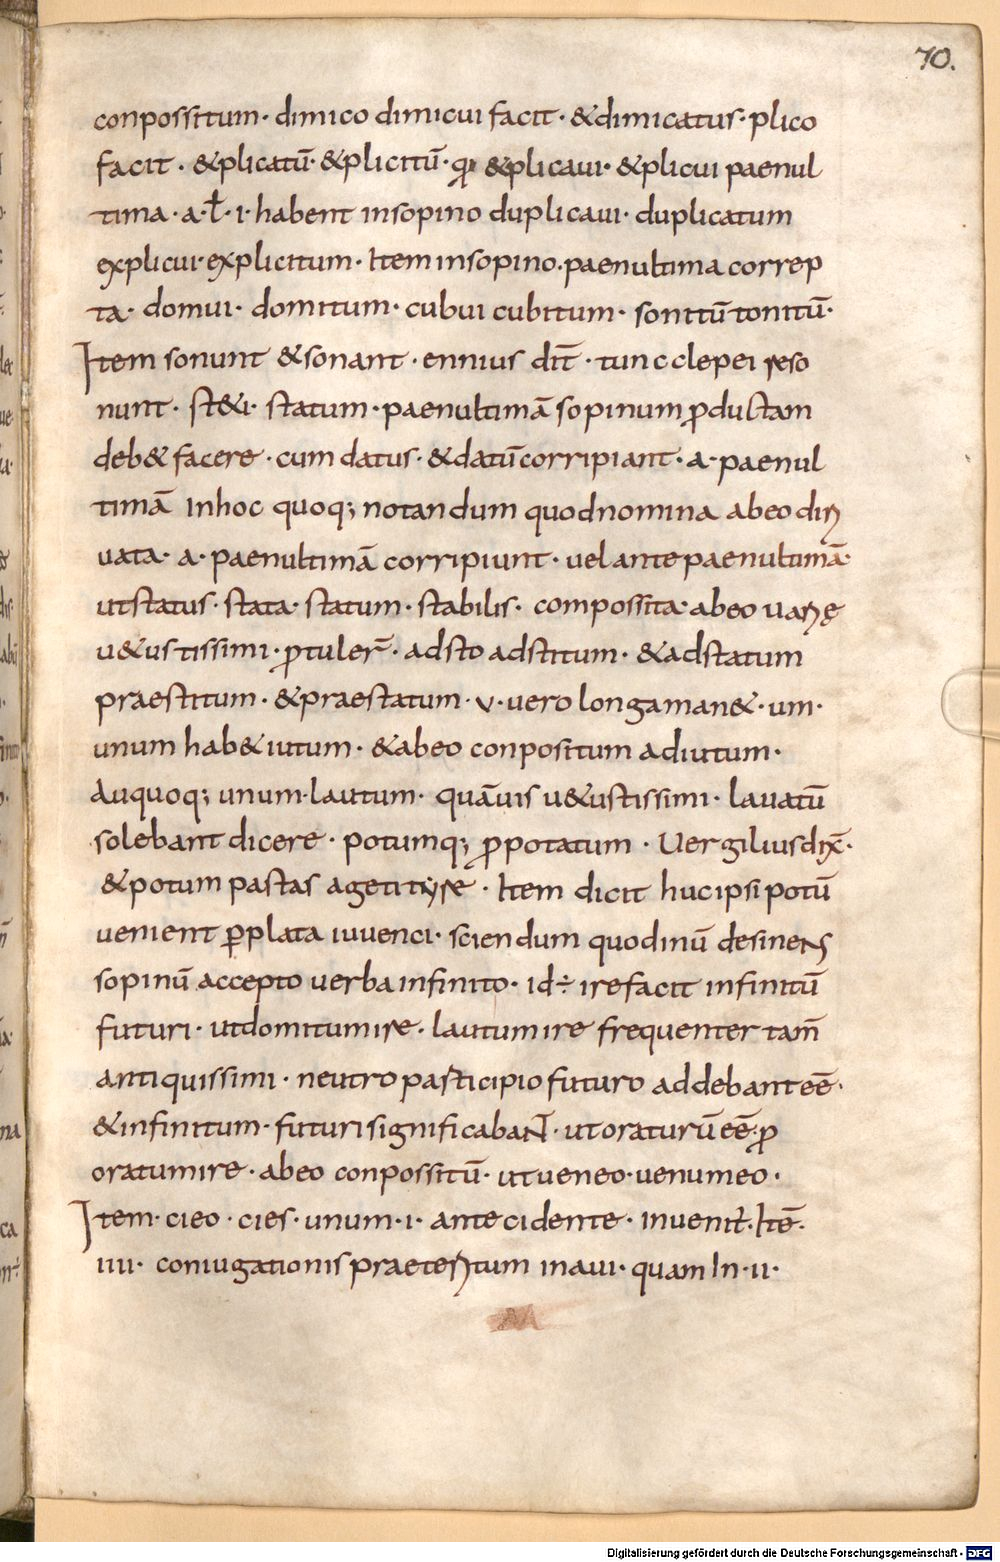 70.
conpossitum· dimico dimicui facit· &dimicatus· plico
facit· &plicatū· &plicitū· qi &plicaui· &plicui paenul
tima· a· ł· i· habent insopino duplicaui· duplicatum
explicui· explicitum· Item insopino. paenultima correp
ta· domui· domitum· cubui cubitum· sonitū tonitū·
Item sonunt &sonant· ennius dit̄· tunc clepei reso
nunt· st&i· statum· paenultimā sopinum ꝓductam
deb& facere· cum datus· &datū corripiant· a· paenul
timā Inhoc quoq; notandum quod nomina abeo diri
uata· a· paenultimā corripiunt· uel ante paenultimā·
utstatus· stata· statum· stabilis· compossita· abeo uarię
u&ustissimi· ꝓtuler̄· adsto adstitum· &adstatum
praestitum· &praestatum· v· uero longa man&· um·
unum hab& iutum· &abeo conpositum adiutum·
Auquoq; unum· lautum· quāuis u&ustissimi· lauatū
solebant dicere· potumq; ꝓpotatum· Uergilius dix̄·
&potum pastas age tityre· Item dicit huc ipsi potū
uenient ꝑplata iuuenci· sciendum quod inū desinens
sopinū accepto uerba infinito· id÷ ire facit infinitū
futuri· utdomitumire· lautumire frequenter tam̄
antiquissimi· neutro participio futuro addebant eē·
&infinitum· futuri significabant· utoraturū eē· ꝓ
oratumire· abeo conpossitū· utueneo· uenumeo·
Item· cieo· cies· unum· i· antecidente· inuenit̄· Itē·
iiii· coniugationis praeteritum inaui· quam In· ii·
Digitalisierung gefördert durch die Deutsche Forschungsgemeinschaft - DFG